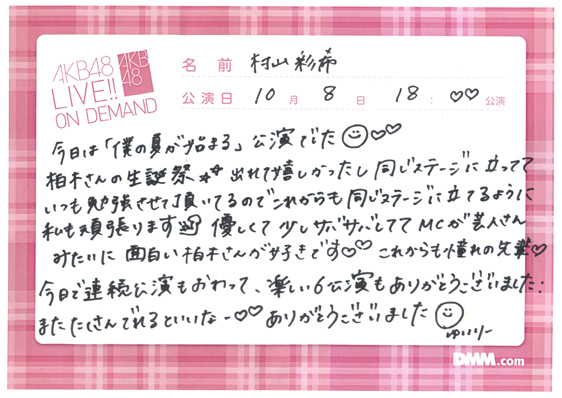 AKB48
LIVE!!
ON DEMAND
AKB
48
名前 村山彩希
公演日 10月8日 18:♡♡公演
今日は「僕の夏が始まる」公演でした☺♡♡
柏木さんの生誕祭 出れて嬉しかったし同じステージに立ってて
いつも勉強させて頂いてるのでこれからも同じステージに立てるように
私も頑張ります 優しくて少しサバサバしててMCが芸人さん
みたいに面白い柏木さんが好きです♡♡ これからも憧れの先輩♡
今日で連続公演もおわって、楽しい6公演もありがとうございました!
またたくさんでれるといいなー♡♡ありがとうございました☺
ゆいりー
DMM.com